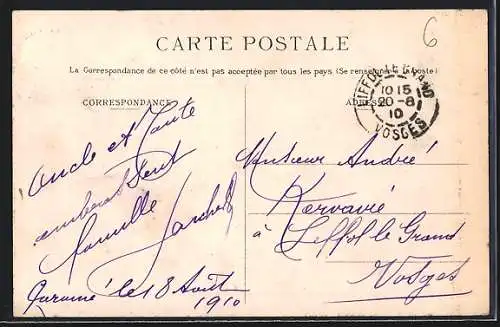 CARTE POSTALE
La Correspondance de ce côté n'est pas acceptée par tous les pays (Se renseigner à la poste)
CORRESPONDANCE
ADRESSE
LIFFOL-LE-GRAND
10 15
20-8
10
VOSGES
6
Oncle et Tante
famille
le 18 Août
1910
Monsieur André
Kervarié
à Leffol le Grand
Vosges